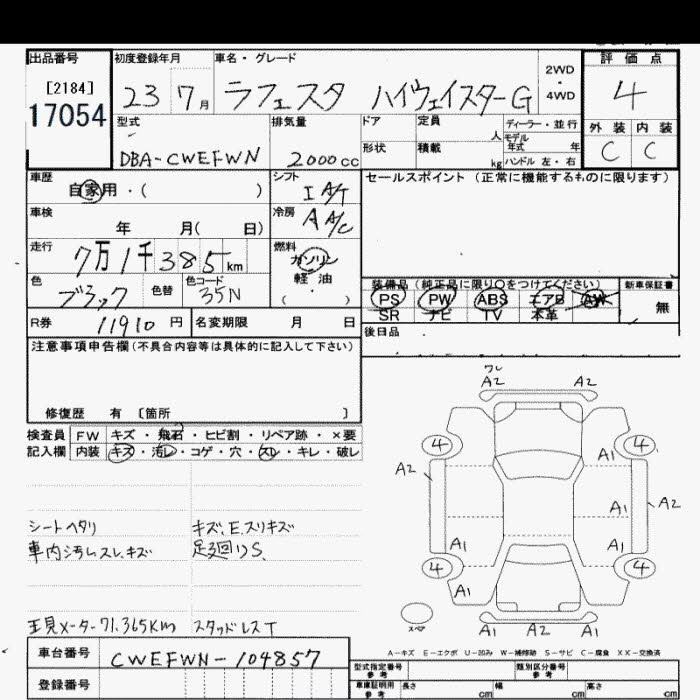 出品番号
[2184]
17054
初度登録年月
23 7月
車名・グレード
ラフェスタ ハイウェイスターG
2WD
・
4WD
評価点
4
外装 内装
C C
型式
DBA-CWEFWN
排気量
2000cc
ドア
形状
定員
人
積載
kg
ディーラー・並行
モデル年式 年
ハンドル 左・右
車歴
自家用・( )
シフト
I A/T
セールスポイント (正常に機能するものに限ります)
車検
年 月( 日)
冷房
A A/C
走行
7万1千385km
燃料
ガソリン
軽油
( ・ )
色
ブラック
色替
色コード
35N
装備品 (純正品に限り○をつけてください)
新車保証書
PS PW ABS エアB AW
SR ナビ TV 本革
無
R券
11910円
名変期限 月 日
後日品
注意事項申告欄(不具合内容等は具体的に記入して下さい)
修復歴 有 〔箇所 〕
検査員
記入欄
FW キズ・飛石・ヒビ割・リペア跡・×要
内装 キズ・汚レ・コゲ・穴・スレ・キレ・破レ
シートヘタリ
キズ、E、スリキズ
車内汚レスレ、キズ
足廻りS、
現メーター71,365Km
スタッドレスT
ワレ
A2 A2
4 4
A1
A2
A1 A2
A1 A1
4 4
A1
A1 A2 A1
スペア
A-キズ E-エクボ U-凹み W-補修跡 S-サビ C-腐食 XX-交換済
車台番号
CWEFWN-104857
登録番号
型式指定番号
参考
類別区分番号
参考
車庫証明用
参考
長さ cm
幅 cm
高さ cm